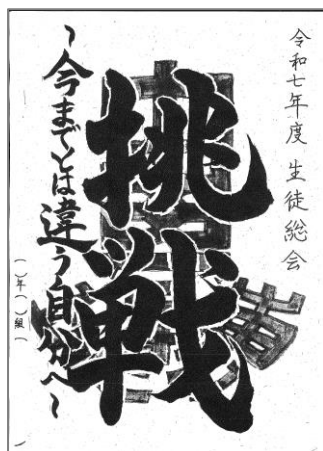 令和七年度 生徒総会
挑戦
～今までとは違う自分へ～
( )年( )組( )